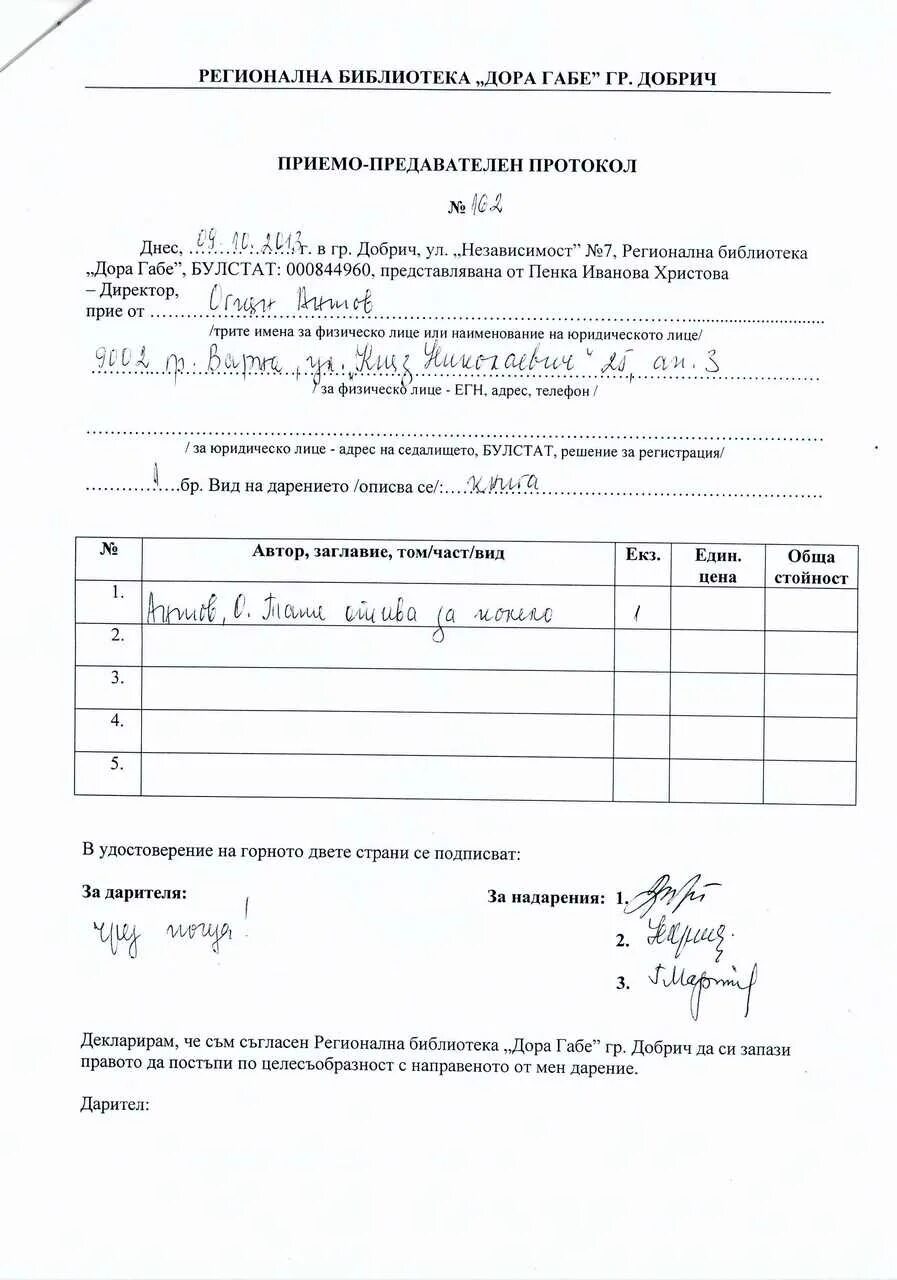 РЕГИОНАЛНА БИБЛИОТЕКА „ДОРА ГАБЕ” ГР. ДОБРИЧ
ПРИЕМО-ПРЕДАВАТЕЛЕН ПРОТОКОЛ
№ 162
Днес, 09.10.2013 г. в гр. Добрич, ул. „Независимост” №7, Регионална библиотека
„Дора Габе”, БУЛСТАТ: 000844960, представлявана от Пенка Иванова Христова
– Директор,
прие от Антов
/трите имена за физическо лице или наименование на юридическото лице/
9002 гр. Варна, ул. „Княз Николаевич“ 25, ап. 3
/ за физическо лице - ЕГН, адрес, телефон /
/ за юридическо лице - адрес на седалището, БУЛСТАТ, решение за регистрация/
1 бр. Вид на дарението /описва се/: книга
№ Автор, заглавие, том/част/вид Екз. Един. цена Обща стойност
1. Антов, О. отива за 1
2.
3.
4.
5.
В удостоверение на горното двете страни се подписват:
За дарителя: За надарения: 1.
чрез поща! 2.
3.
Декларирам, че съм съгласен Регионална библиотека „Дора Габе” гр. Добрич да си запази
правото да постъпи по целесъобразност с направеното от мен дарение.
Дарител: